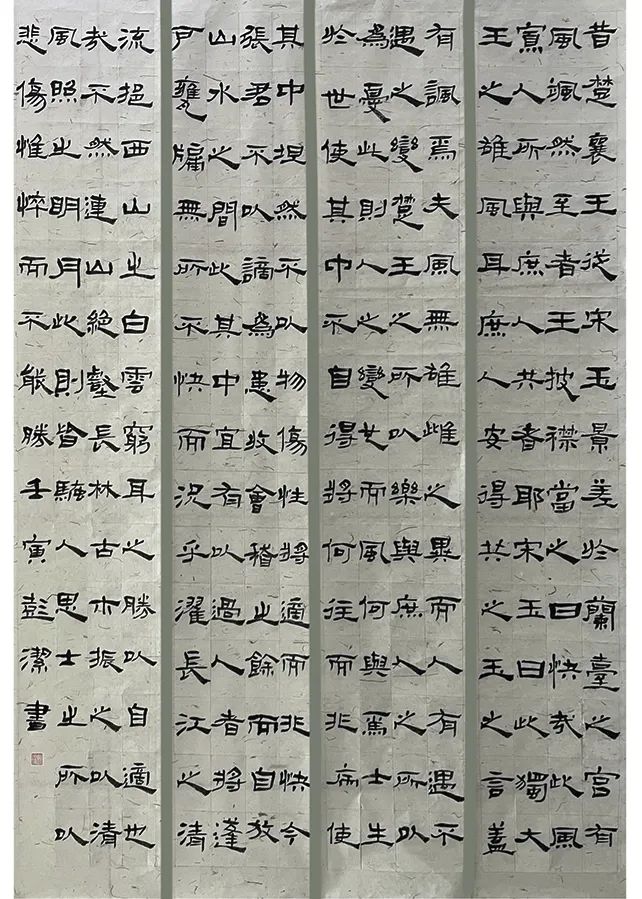 昔楚襄王從宋玉景差於蘭臺之宮有
風颯然至者王披襟當之曰快哉此風
寡人所與庶人共者耶宋玉曰此獨大
王之雄風耳庶人安得共之玉之言蓋
有諷焉夫風無雄雌之異而人有遇不
遇之變楚王之所以樂與庶人之所以
為憂此則人之變也而風何與焉士生
於世使其中不自得將何往而非病使
其中坦然不以物傷性將適而非快今
張君不以謫為患收會稽之餘而自放
山水之間此其中宜有以過人者將蓬
戶甕牖無所不快而況乎濯長江之清
流挹西山之白雲窮耳之勝以自適也
哉不然連山絕壑長林古木振之以清
風照之明月此則皆騷人思士之所以
悲傷惟悴而不能勝壬寅彭潔書